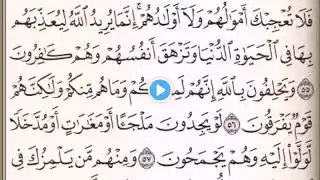 فَلَا تُعْجِبْكَ أَمْوَٰلُهُمْ وَلَآ أَوْلَٰدُهُمْ ۚ إِنَّمَا يُرِيدُ ٱللَّهُ لِيُعَذِّبَهُم
بِهَا فِى ٱلْحَيَوٰةِ ٱلدُّنْيَا وَتَزْهَقَ أَنفُسُهُمْ وَهُمْ كَٰفِرُونَ
٥٥ وَيَحْلِفُونَ بِٱللَّهِ إِنَّهُمْ وَمَا هُم مِّنكُمْ وَلَٰكِنَّهُمْ
قَوْمٌ يَفْرَقُونَ ٥٦ لَوْ يَجِدُونَ مَلْجَـًٔا أَوْ مَغَٰرَٰتٍ أَوْ مُدَّخَلًا
لَّوَلَّوْا۟ إِلَيْهِ وَهُمْ يَجْمَحُونَ ٥٧ وَمِنْهُم مَّن يَلْمِزُكَ فِى